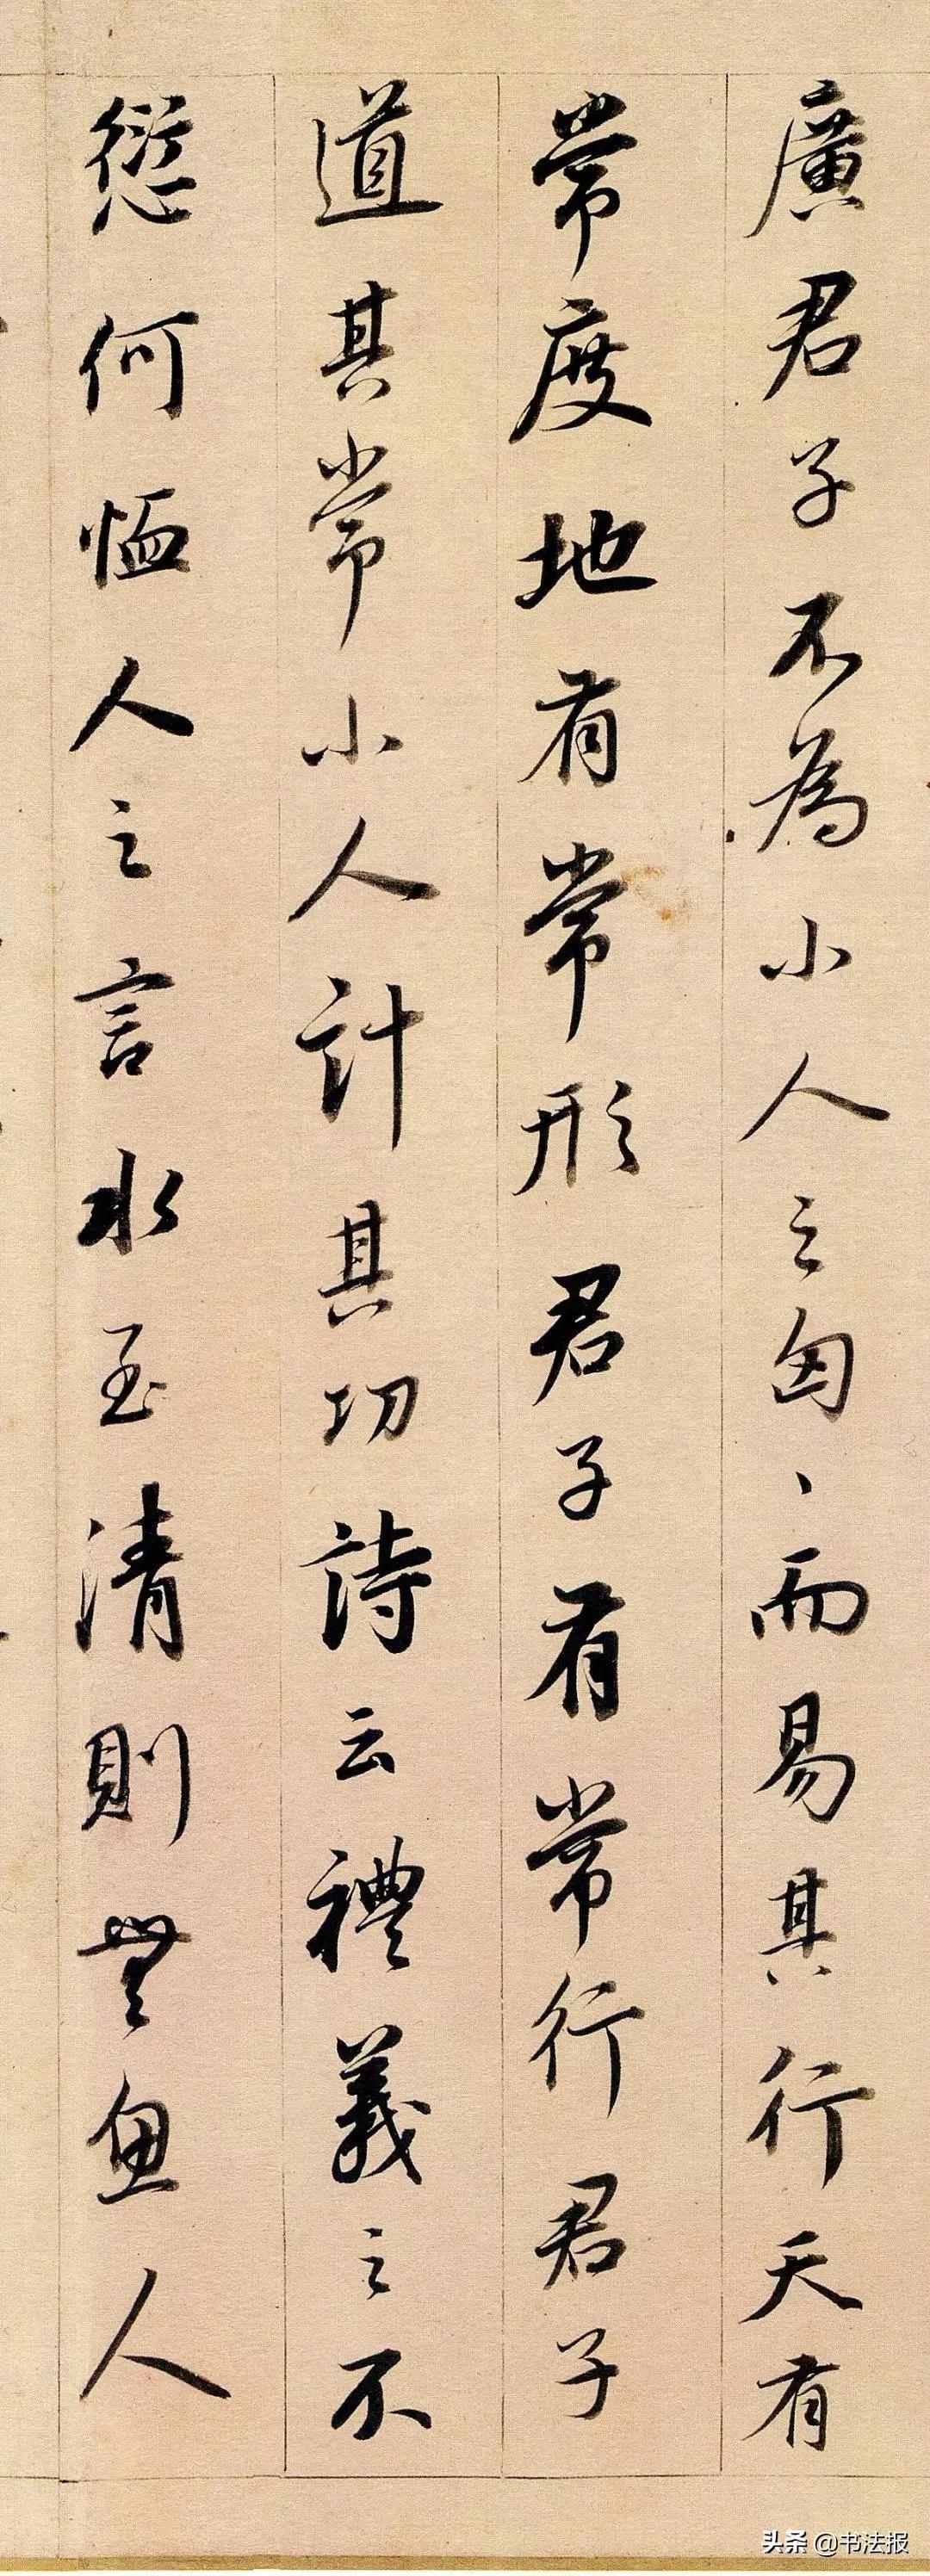 廣君子不為小人之匈、而易其行天有
常度地有常形君子有常行君子
道其常小人計其功詩云禮義之不
愆何恤人之言水至清則無魚人
头条 @书法报